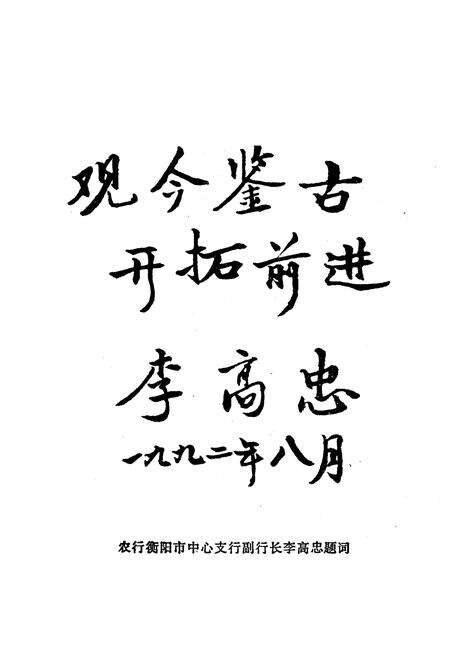 观今鉴古
开拓前进
李高忠
一九九二年八月
农行衡阳市中心支行副行长李高忠题词